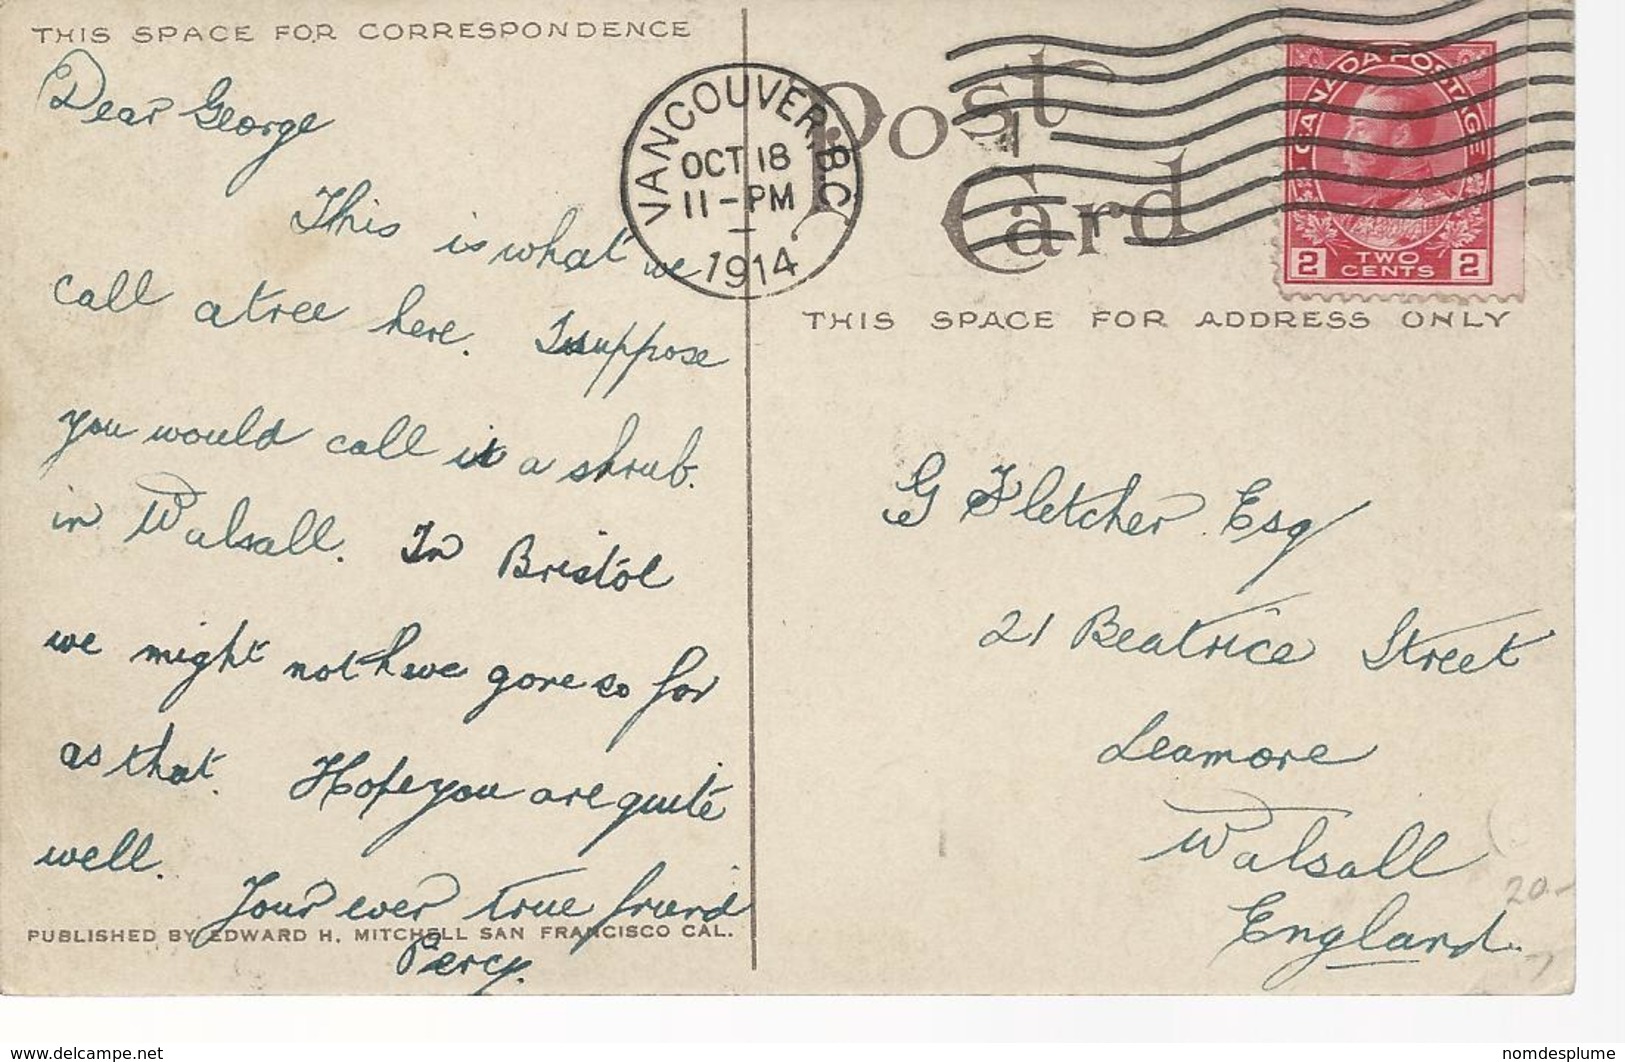 THIS SPACE FOR CORRESPONDENCE
Dear George
This is what we
call a tree here. I suppose
you would call it a shrub.
in Walsall. In Bristol
we might not have gone so far
as that. Hope you are quite
well.
Your ever true friend
Percy.
PUBLISHED BY EDWARD H. MITCHELL SAN FRANCISCO CAL.
VANCOUVER, B.C.
OCT 18
11-PM
1914
Post
Card
CANADA POSTAGE
2 TWO CENTS 2
THIS SPACE FOR ADDRESS ONLY
G Fletcher Esq
21 Beatrice Street
Leamore
Walsall
England
20-
www.delcampe.net
nomdesplume